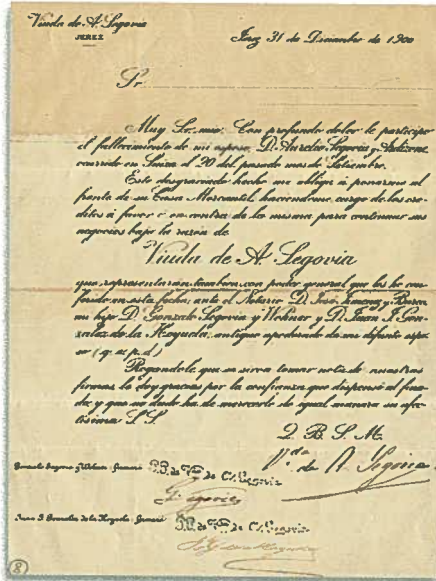 Viuda de A. Segovia
JEREZ
Jerez 31 de Diciembre de 1900
Sr.
Muy Sr. mio: Con profundo dolor le participo
el fallecimiento de mi esposo, D. Aurelio Segovia y
ocurrido en el 20 del pasado mes de Setiembre.
Este desgraciado hecho me obliga á ponerme al
frente de su Casa Mercantil, haciendome cargo de los cre-
ditos á favor ó en contra de la misma para continuar sus
negocios bajo la razón de
Viuda de A. Segovia
que representarán tambien con poder general que les he con-
ferido en esta fecha, ante el Notario D. José y
mi hijo D. Gonzalo Segovia y y D. Juan J. Gon-
zalez de la Hoyuela, antiguo apoderado de mi difunto espo-
so (q. e. p. d.)
Rogandole que se sirva tomar nota de nuestras
firmas le doy gracias por la confianza que dispensó al fina-
do, y que no dudo ha de merecerle de igual manera su afec-
tisima S. S.
Q. B. S. M.
V.da de A. Segovia
Gonzalo Segovia y firmará P.P. de V.da de A. Segovia
G. Segovia
Juan J. Gonzalez de la Hoyuela firmará P.P. de V.da de A. Segovia
8